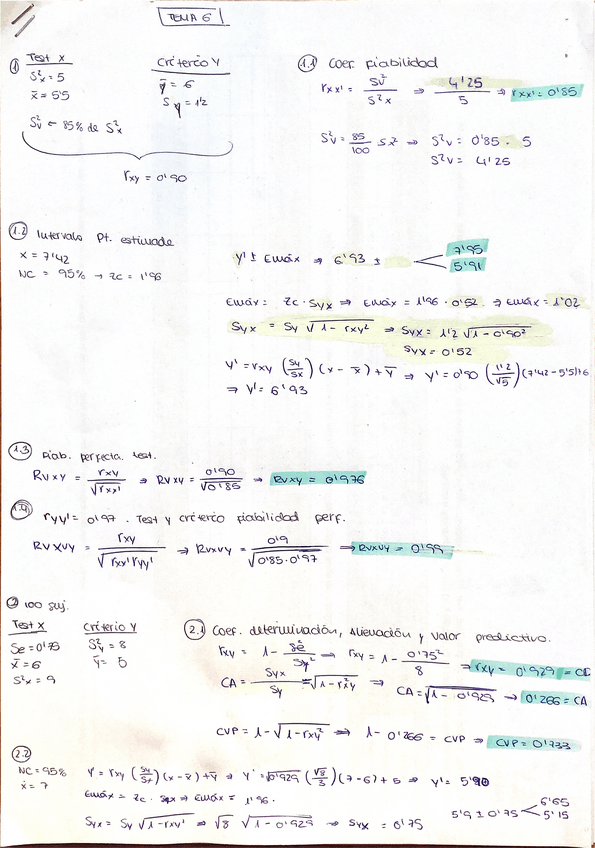 TEMA 6
① Test X
S²x = 5
x̄ = 5'5
S²v ← 85% de S²x
Criterio Y
ȳ = 6
Sy = 1'2
rxy = 0'90
1.1 Coef. fiabilidad
rxx' = S²v / S²x ⇒ 4'25 / 5 ⇒ rxx' = 0'85
S²v = 85/100 · Sx² ⇒ S²v = 0'85 · 5
S²v = 4'25
1.2 Intervalo Pt. estimada
x = 7'42
NC = 95% → Zc = 1'96
Y' ± Emáx ⇒ 6'93 ±
7'95
5'91
Emáx = Zc · Syx ⇒ Emáx = 1'96 · 0'52 ⇒ Emáx = 1'02
Syx = Sy √1 - rxy² ⇒ Syx = 1'2 √1 - 0'90²
Syx = 0'52
Y' = rxy (Sy/Sx) (x - x̄) + ȳ ⇒ Y' = 0'90 (1'2/√5) (7'42 - 5'5) + 6
⇒ Y' = 6'93
1.3 Fiab. perfecta. test.
RVxy = rxy / √rxx' ⇒ RVxy = 0'90 / √0'85 ⇒ RVxy = 0'976
1.4 ryy' = 0'97. Test y criterio fiabilidad perf.
RVxVy = rxy / √rxx' ryy' ⇒ RVxVy = 0'9 / √0'85·0'97 ⇒ RVxVy = 0'99
② 100 suj.
Test X
Se = 0'75
x̄ = 6
S²x = 9
Criterio Y
S²y = 8
ȳ = 5
2.1 Coef. determinación, Alienación y valor predictivo.
rxy = 1 - Se² / Sy² → rxy = 1 - 0'75² / 8 ⇒ rxy = 0'929 = CD
CA = Syx / Sy = √1 - r²xy ⇒ CA = √1 - 0'929 → 0'266 = CA
CVP = 1 - √1 - rxy² ⇒ 1 - 0'266 = CVP ⇒ CVP = 0'733
2.2
NC = 95%
x = 7
Y' = rxy (Sy/Sx) (x - x̄) + ȳ ⇒ Y' = √0'929 (√8/3) (7 - 6) + 5 ⇒ Y' = 5'90
Emáx = Zc · Syx ⇒ Emáx = 1'96 ·
Syx = Sy √1 - rxy² ⇒ √8 √1 - 0'929 ⇒ Syx = 0'75
5'9 ± 0'75
6'65
5'15